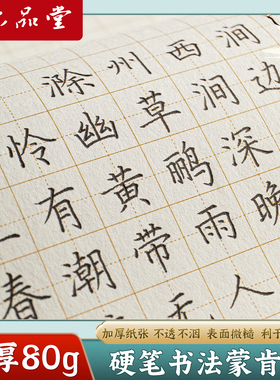 品堂
滁州西涧
怜幽草涧边
有黄鹂深
春潮带雨晚
无人
加厚纸张 不透不洇 表面微糙 利子
厚80g
硬笔书法蒙肯